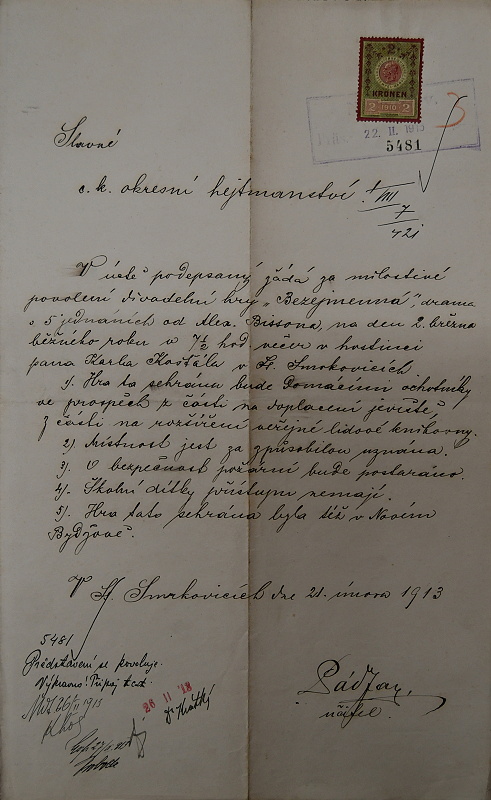 KRONEN
2 1910 2
22. II. 1913
5481
Slavné
c. k. okresní hejtmanství!
VIII
7
421
V úctě podepsaný žádá za milostivé
povolení divadelní hry „Bezejmenná", drama
o 5 jednáních od Alex. Bissona, na den 2. března
běžného roku v 7½ hod. večer v hostinci
pana Karla Košťála v H. Smrkovicích.
1). Hra ta sehrána bude Domácími ochotníky
ve prospěch z části na doplacení jeviště,
z části na rozšíření veřejné lidové knihovny.
2). Místnost jest za způsobilou uznána.
3). O bezpečnost požární bude postaráno.
4). Školní dítky přístupu nemají.
5). Hra tato sehrána byla též v Novém
Bydžově.
V H. Smrkovicích dne 21. února 1913
5481
Představení se povoluje.
26 II '13
učitel.